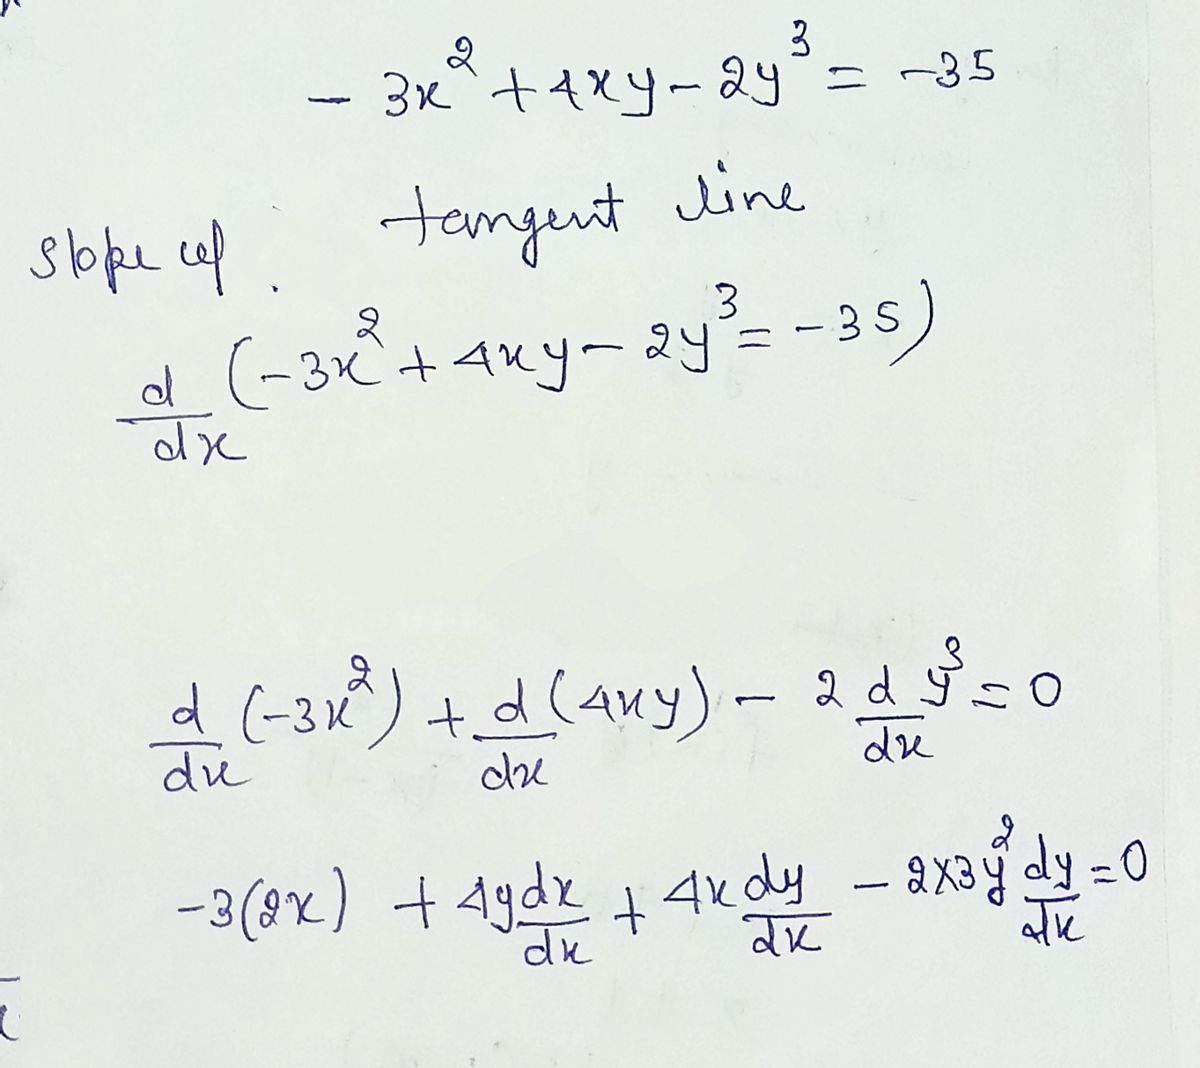 -3x² + 4xy - 2y³ = -35
slope of tangent line
d/dx (-3x² + 4xy - 2y³ = -35)
d/dx (-3x²) + d/dx (4xy) - 2 d/dx y³ = 0
-3(2x) + 4y dx/dx + 4x dy/dx - 2×3y² dy/dx = 0